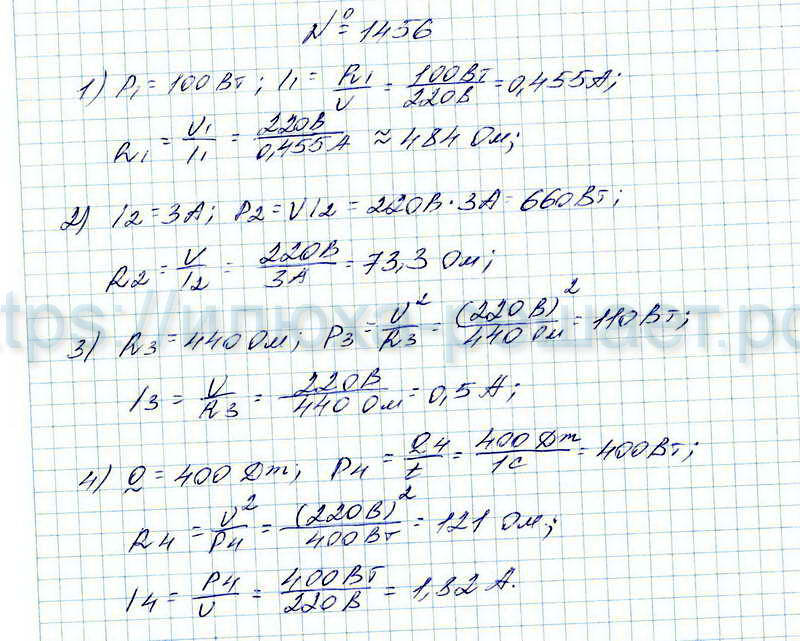 № 1456
1) P₁ = 100 Вт; I₁ = P₁/U = 100Вт/220В = 0,455А;
R₁ = U₁/I₁ = 220В/0,455А ≈ 484 Ом;
2) I₂ = 3А; P₂ = UI₂ = 220В · 3А = 660Вт;
R₂ = U/I₂ = 220В/3А = 73,3 Ом;
3) R₃ = 440 Ом; P₃ = U²/R₃ = (220В)²/440 Ом = 110Вт;
I₃ = U/R₃ = 220В/440 Ом = 0,5 А;
4) Q = 400 Дж; P₄ = Q₄/t = 400 Дж/1с = 400Вт;
R₄ = U²/P₄ = (220В)²/400Вт = 121 Ом;
I₄ = P₄/U = 400Вт/220В = 1,82 А.